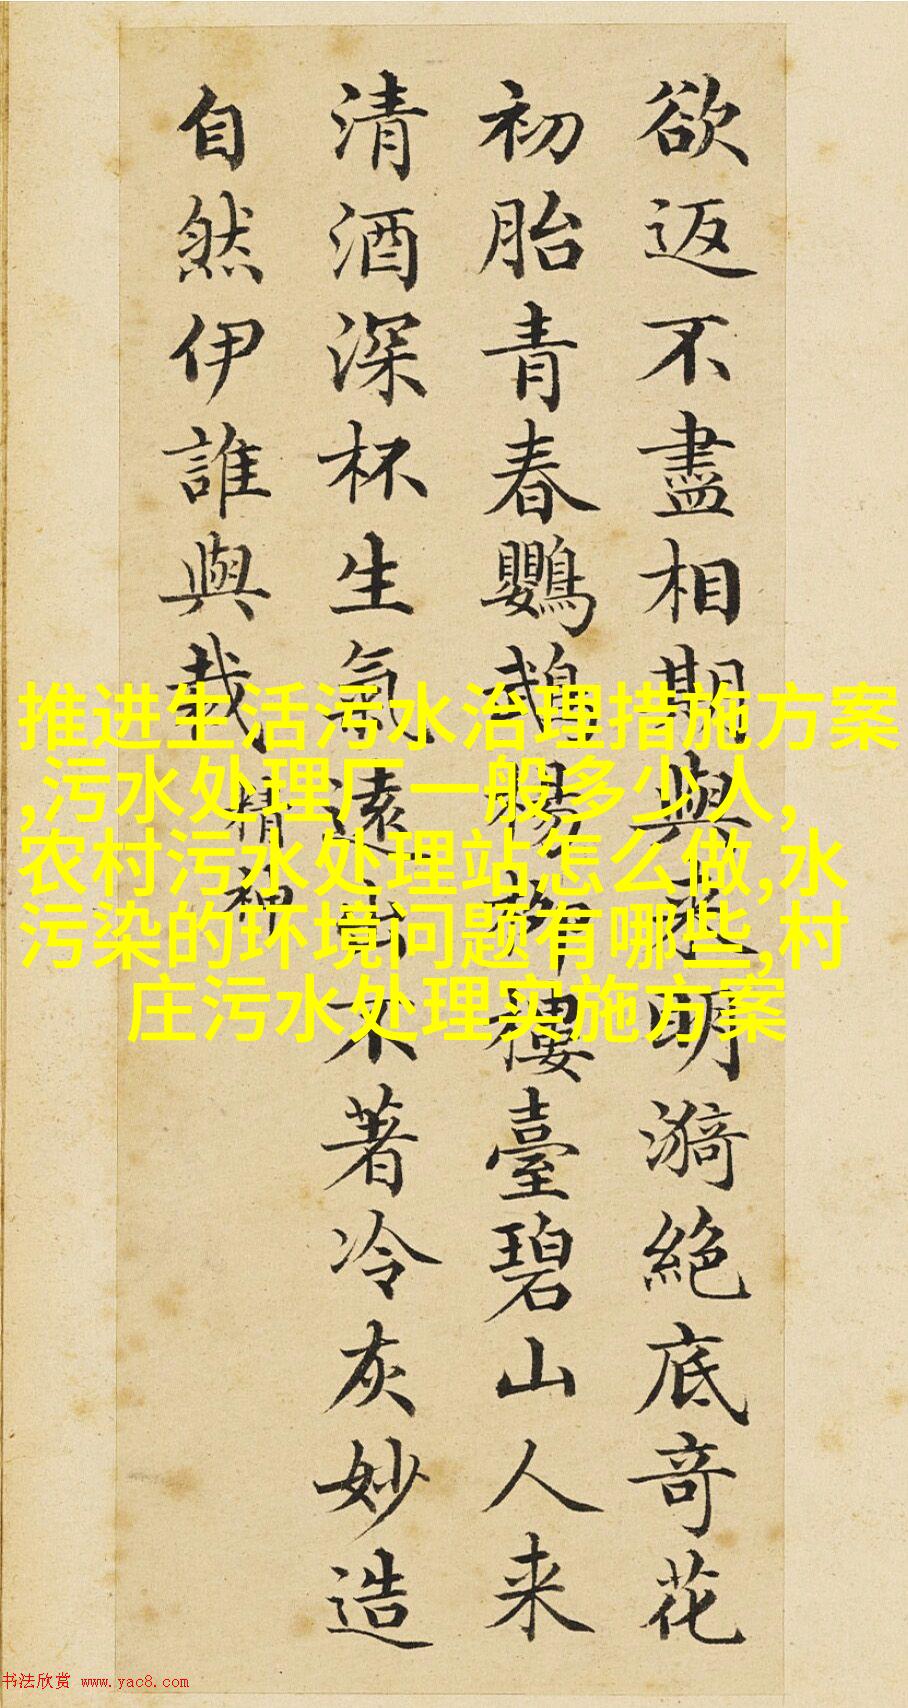 欲返不盡相期與来明漪絕底奇花
初胎青春鸚鵡楊柳樓臺碧山人来
清酒深杯生氣遠出不著冷灰妙造
自然伊誰與裁
精神
推进生活污水治理措施方案
,污水处理厂一般多少人,
农村污水处理站怎么做,水
污染的环境问题有哪些,村
庄污水处理实施方案
书法欣赏 www.yac8.com